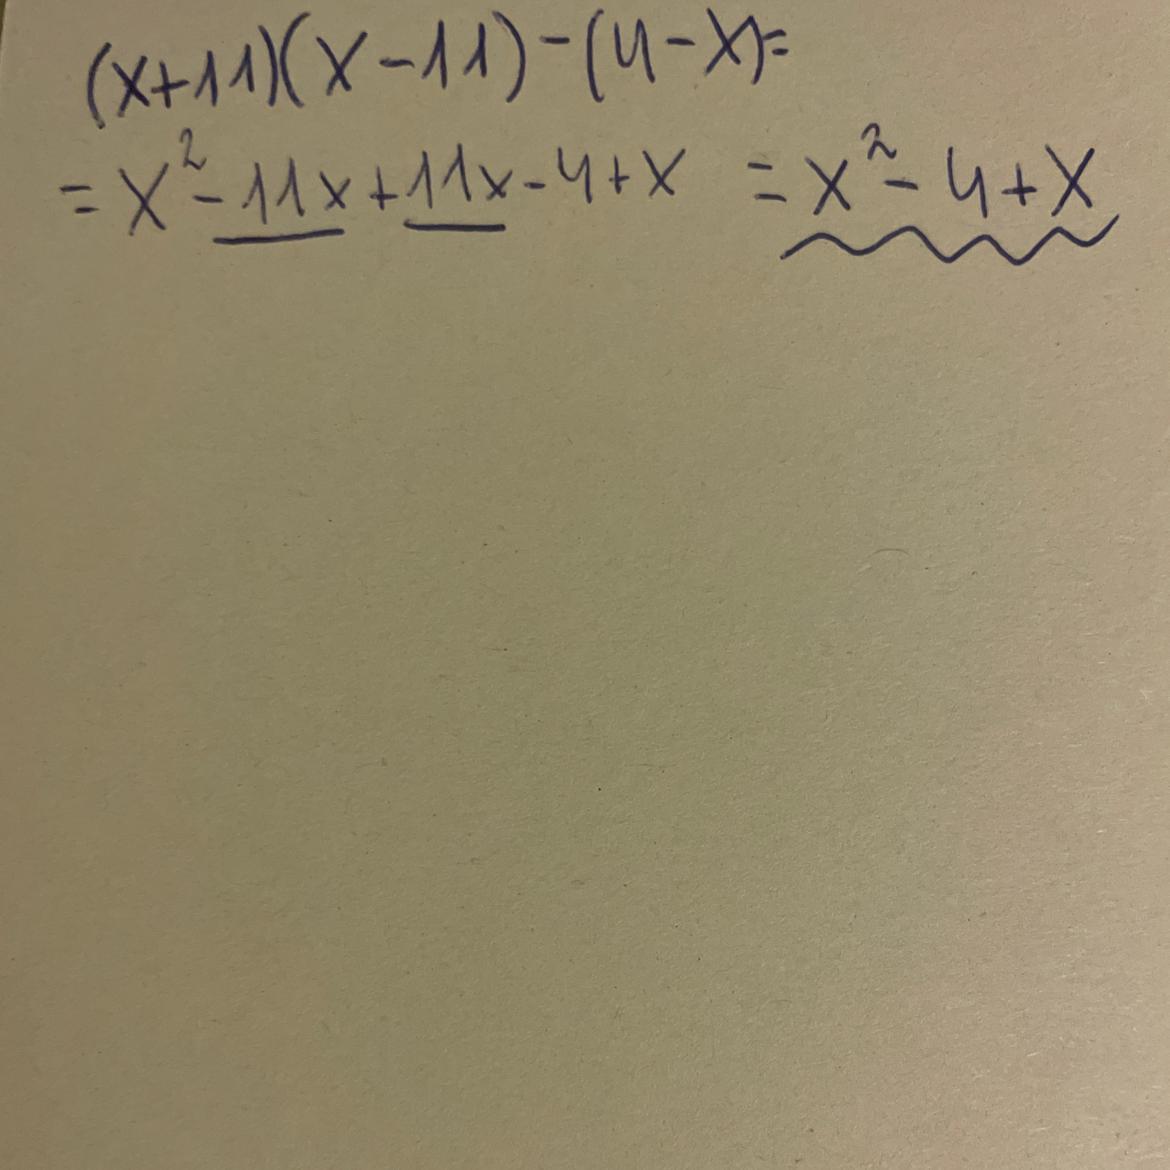 (x+11)(x-11)-(4-x)=
=x²-11x+11x-4+x =x²-4+x